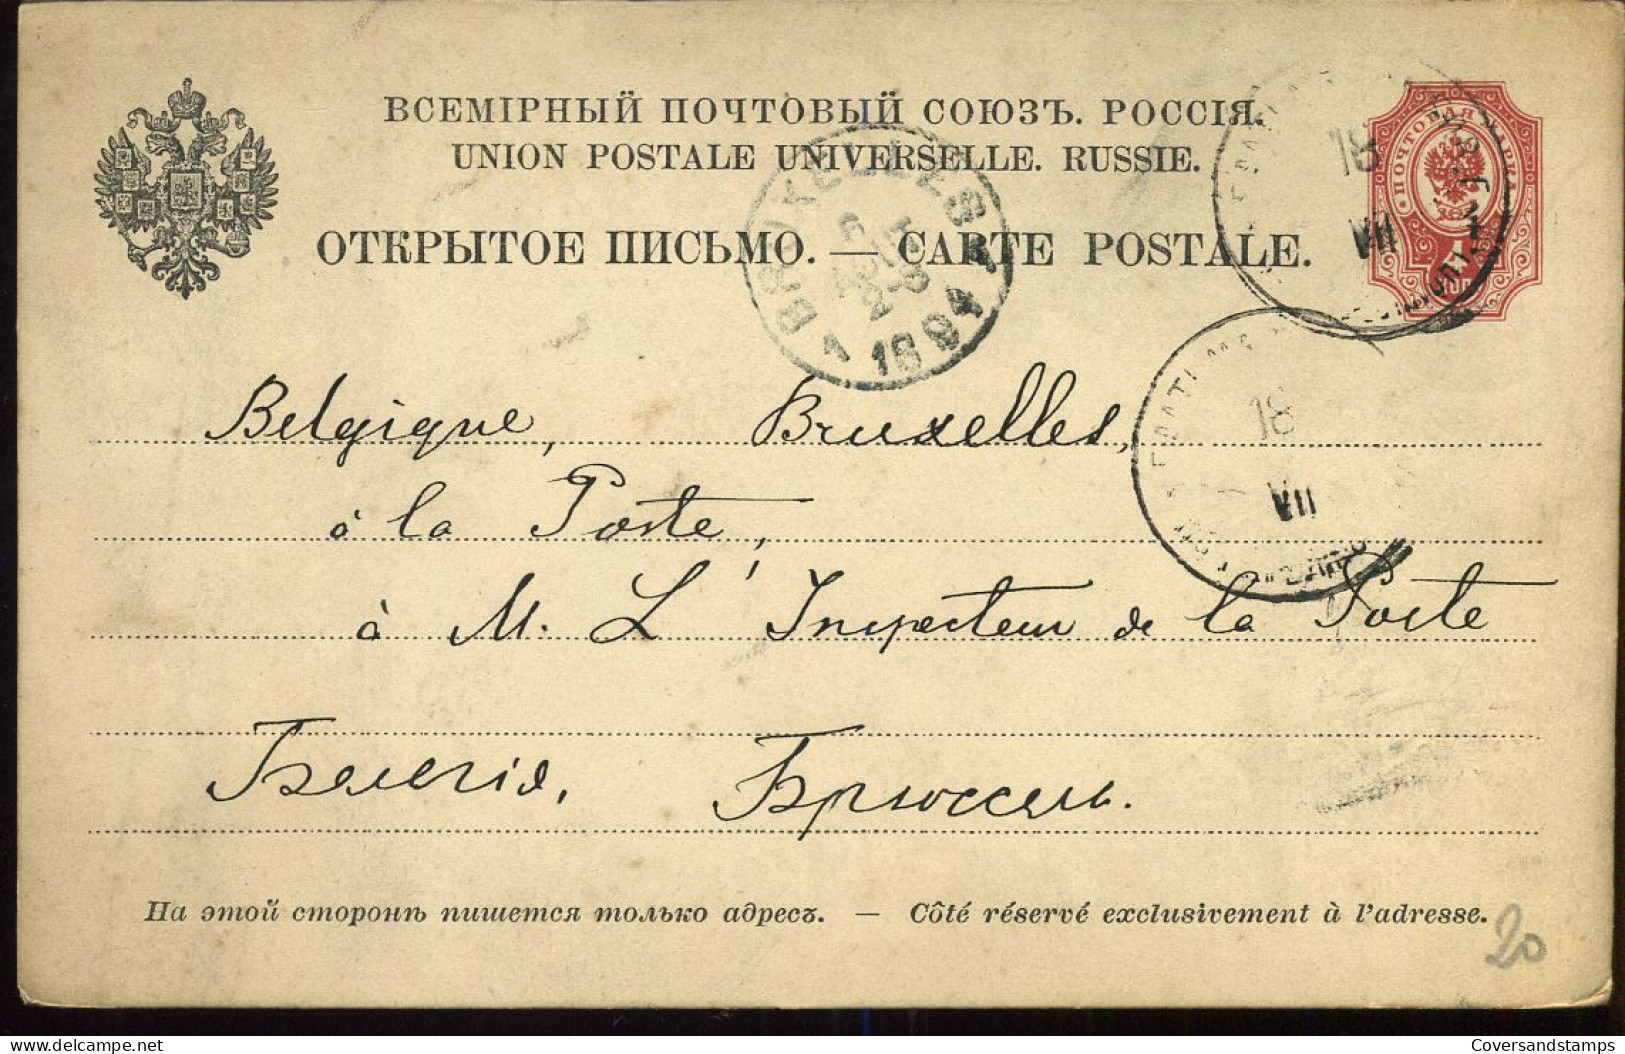 ВСЕМІРНЫЙ ПОЧТОВЫЙ СОЮЗЪ. РОССІЯ.
UNION POSTALE UNIVERSELLE. RUSSIE.
ОТКРЫТОЕ ПИСЬМО. — CARTE POSTALE.
ПОЧТОВАЯ МАРКА
BRUXELLES 1
1894
18
VII
18
VII
Belgique, Bruxelles,
à la Poste,
à M. L'Inspecteur de la Poste
Белгія, Брюссель.
На этой сторонѣ пишется только адресъ. — Côté réservé exclusivement à l'adresse.
20
Coversandstamps